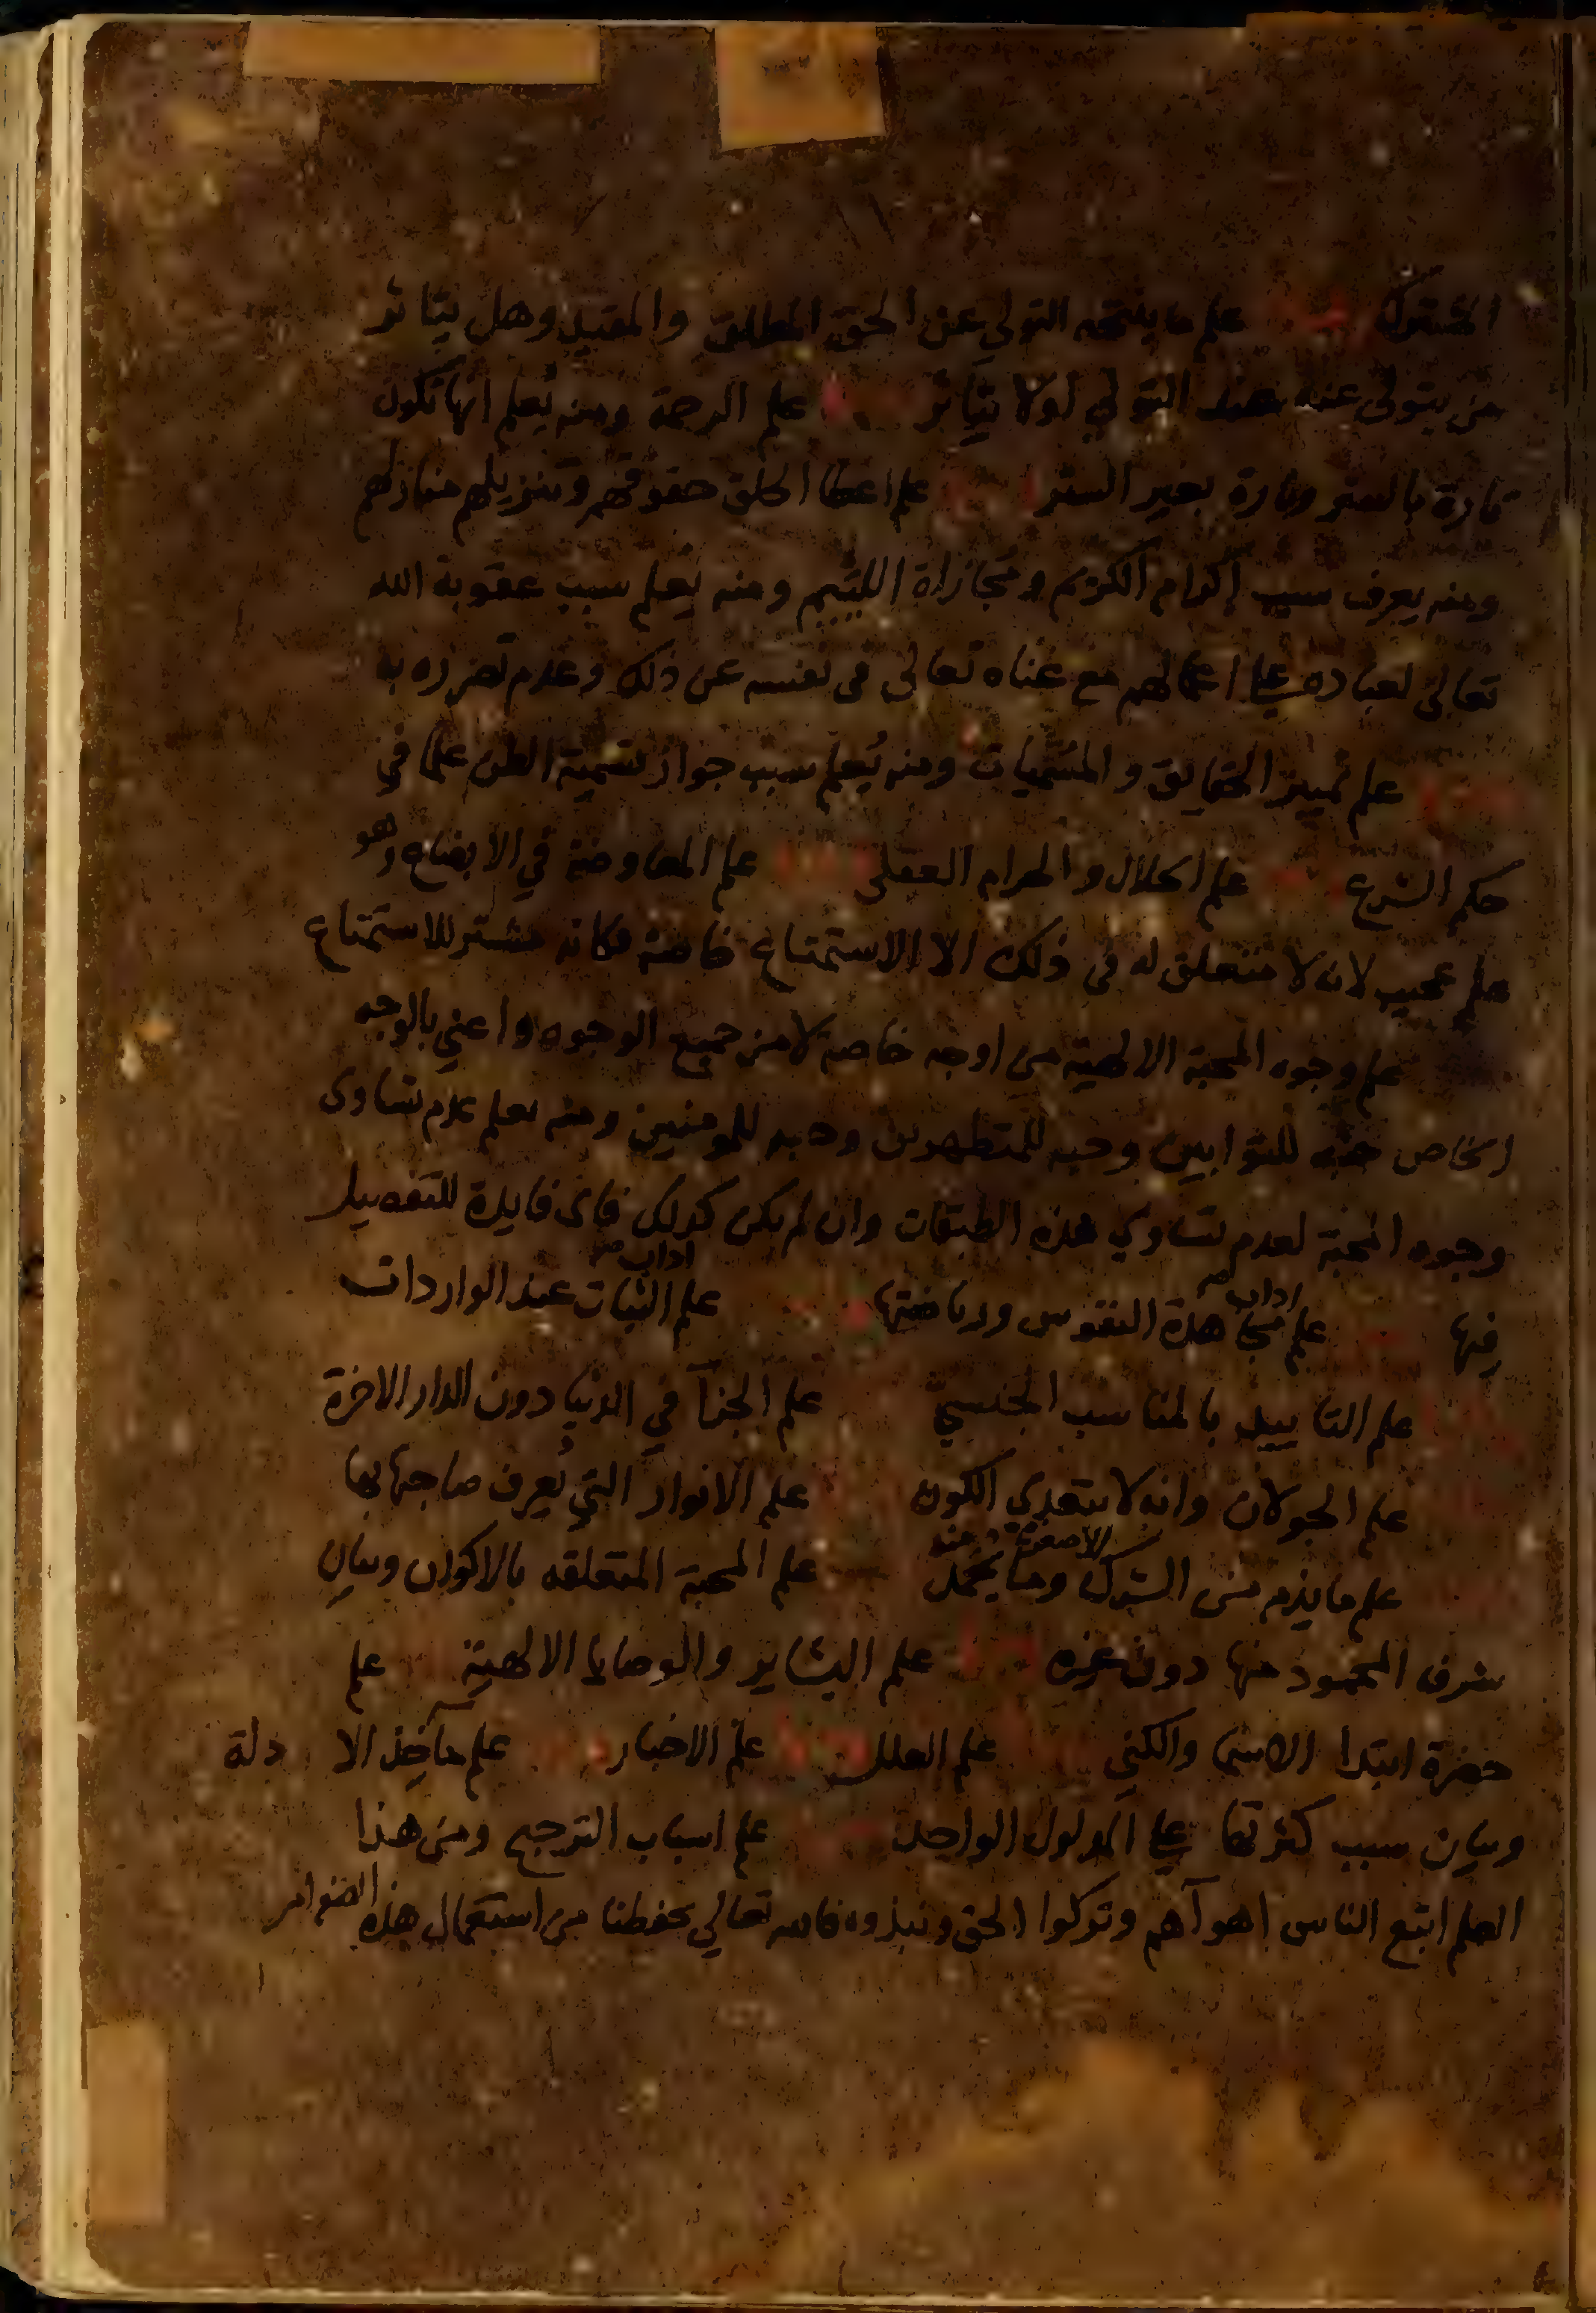 المشترك علم ما ينتجه التولي عن الحق المطلق والمقيد وهل يتاثر
من يتولى عنه بهذا التولي اولا يتاثر علم الرحمة ومنه يُعلم انها تكون
تارة بالستر وتارة بغير الستر علم اعطا الخلق حقوقهم وتنزيلهم منازلهم
ومنه يعرف سبب إكرام الكريم ومجازاة اللئيم ومنه يُعلم سبب عقوبة الله
تعالى لعباده على اعمالهم مع غناه تعالى في نفسه عن ذلك وعدم تضرره به
علم تمييز الحقايق والمسميات ومنه يُعلم سبب جواز تسمية الظن علما في
حكم الشرع علم الحلال والحرام العقلي علم المعاوضة في الابضاع وهو
علم عجيب لانه لا متعلق له في ذلك الا الاستمتاع خاصة فكانه مشتر للاستمتاع
علم وجوه المحبة الالهية من اوجه خاصة لا من جميع الوجوه واعني بالوجه
الخاص حبه للتوابين وحبه للمتطهرين وحبه للمومنين ومنه يعلم عدم تساوى
وجوه المحبة لعدم تساوي هذه الطبقات وان لم يكن كذلك فاى فايدة للتفصيل
فيها علم اداب مجاهدة النفوس ورياضتها علم اداب الثبات عند الواردات
علم التاييد بالمناسب الجنسيّ علم الجزآ في الدنيا دون الدار الاخرة
علم الجولان وانه لا يتعدي الكون علم الانوار التي يُعرف صاحبها بها
علم ما يذم من الشرك وما يحمد منه علم المحبة المتعلقه بالاكوان وبيان
شرف المحمود منها دون غيره علم البشاير والوصايا الالهية علم
حضرة ابتدا الاسما والكني علم العلل علم الاخبار علم مآخذ الا دلة
وبيان سبب كثرتها على المدلول الواحد علم اسباب الترجيح ومن هذا
العلم اتبع الناس اهوآهم وتركوا الحق ونبذوه فالله تعالي يحفظنا من استعمال هذه